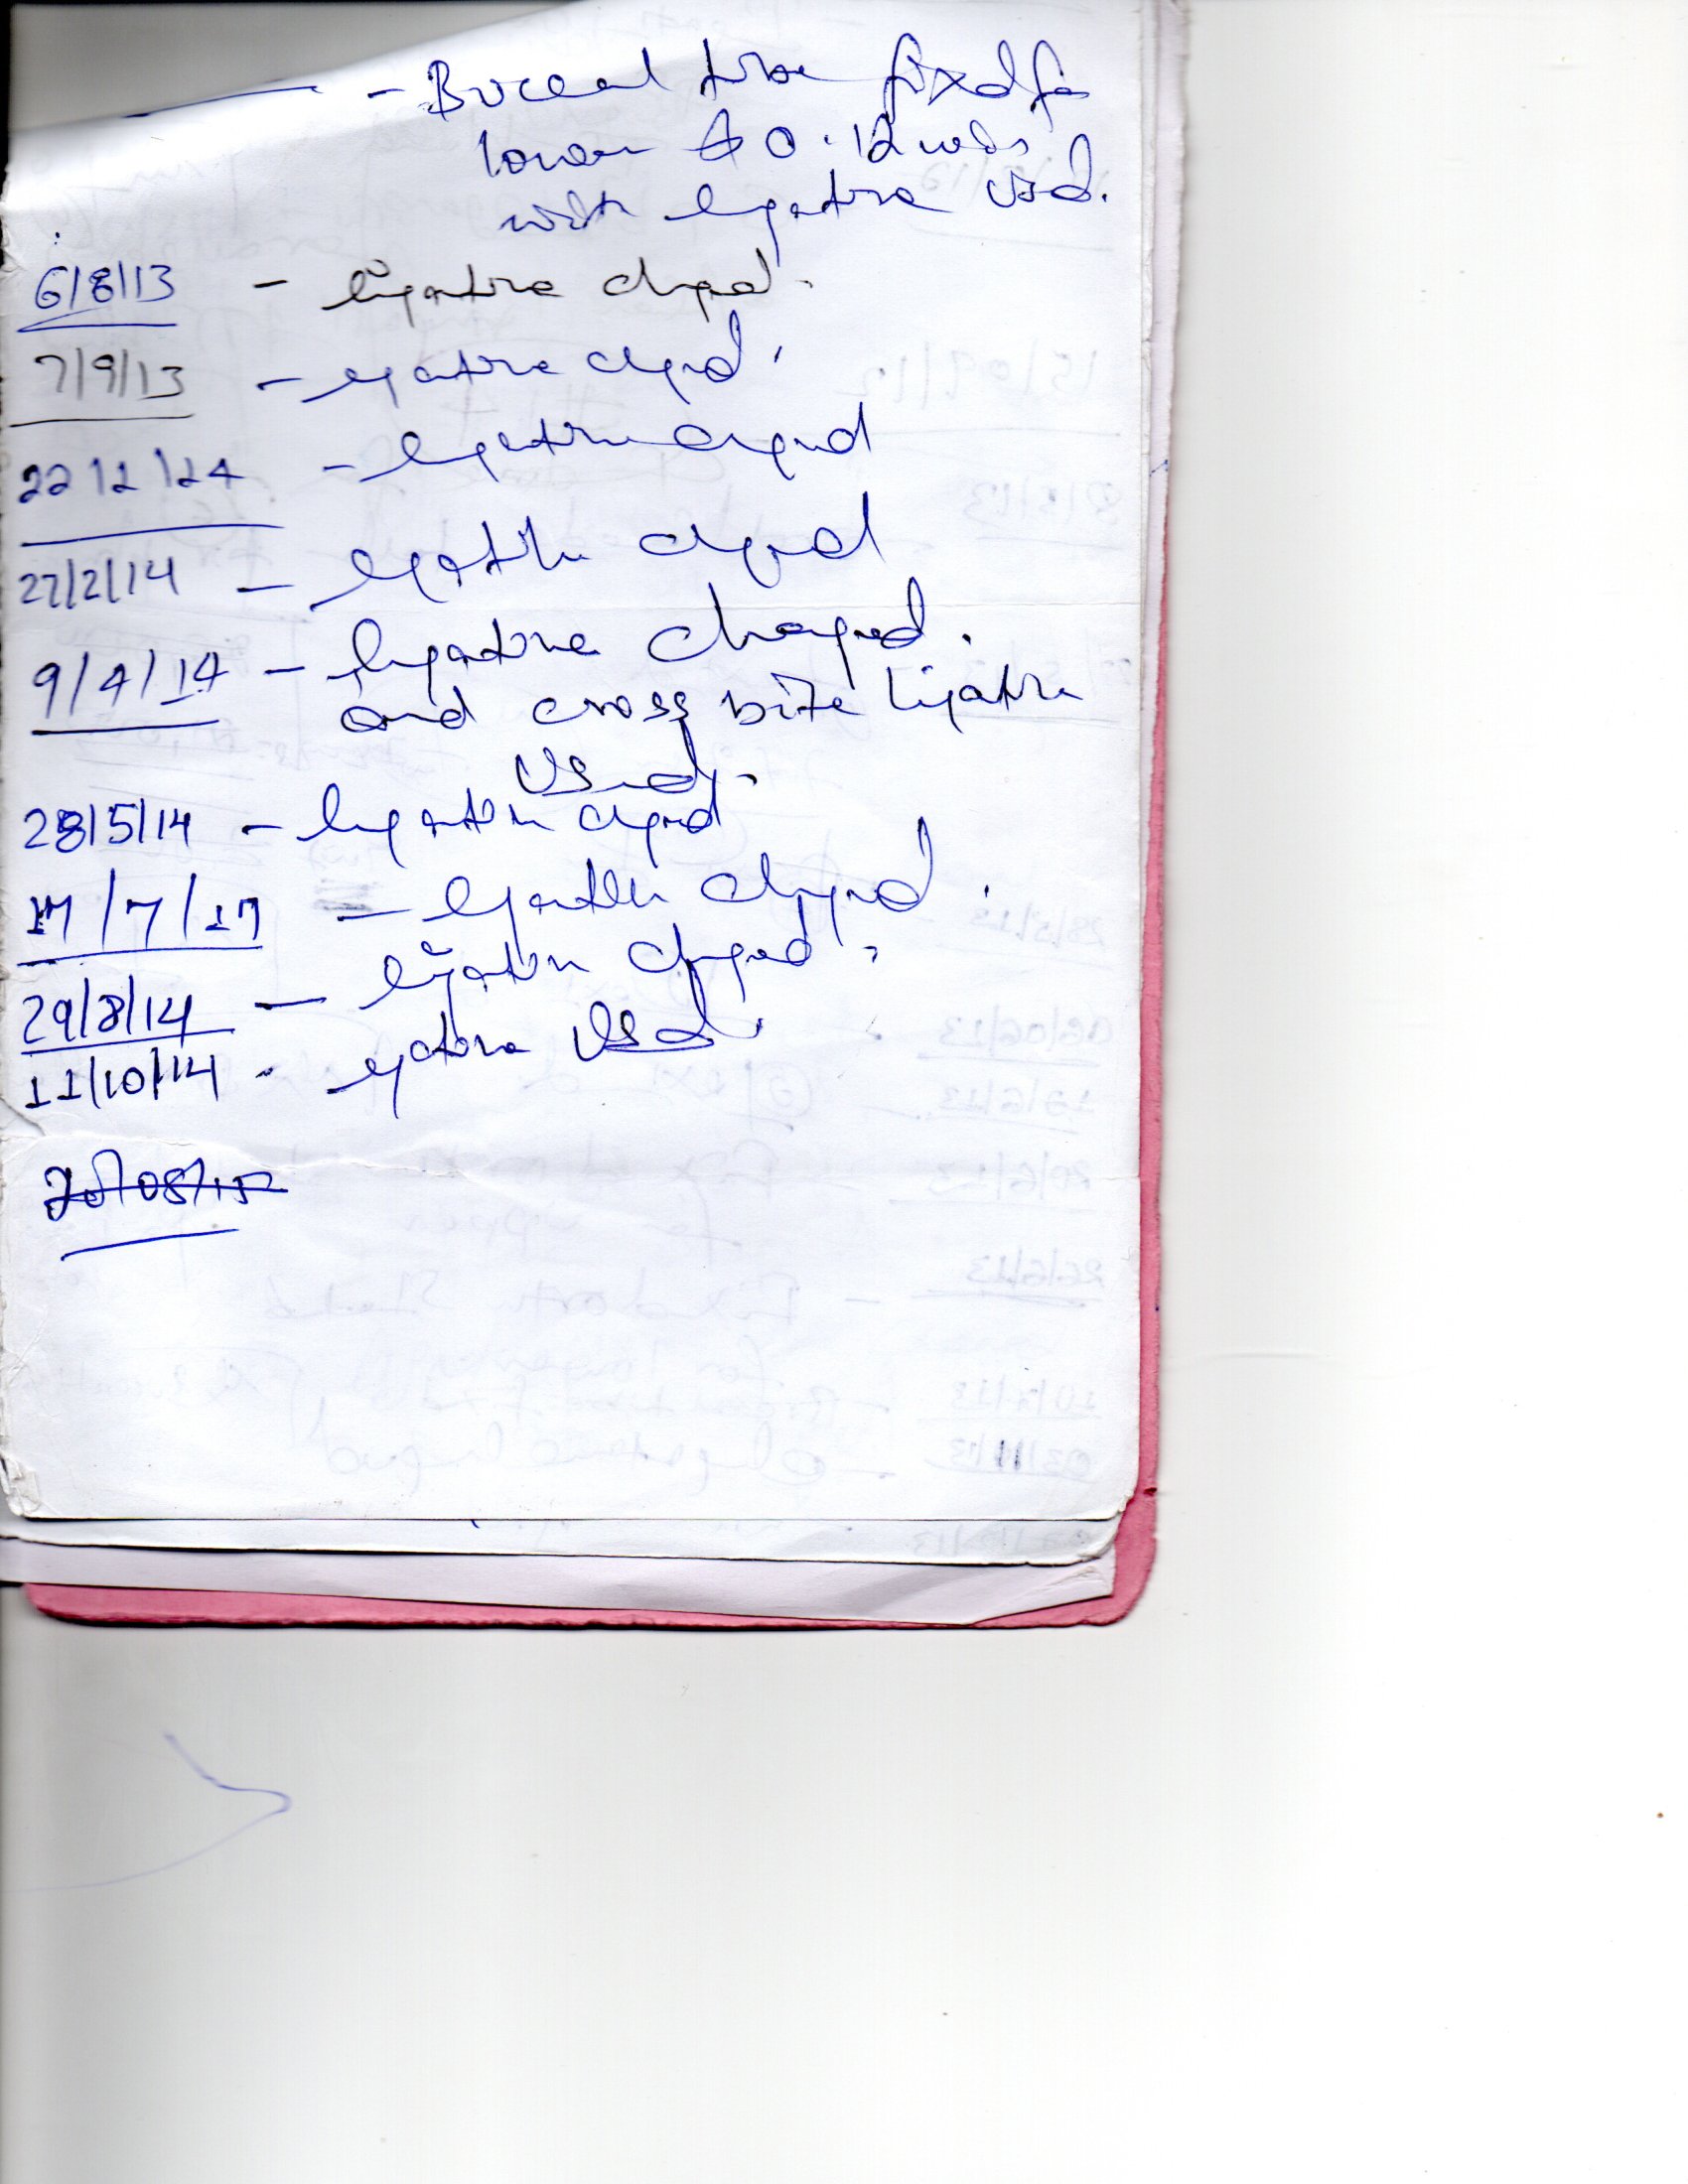 - Buccal tube fixed for
lower & 0.12 wire
with ligature used.
6/8/13 - ligature changed.
7/9/13 - ligature changed.
22/1/14 - ligature changed
27/2/14 - ligature changed
9/4/14 - ligature changed.
and cross bite ligature
used.
28/5/14 - ligature changed
17/7/17 - ligature changed.
29/8/14 - ligature changed.
11/10/14 - ligature used.